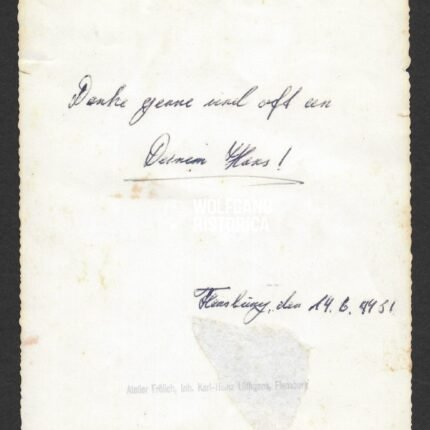 Denke gerne und oft an
Deinen Hans!
WOLFGANG
HISTORICA
Flensburg, den 14. 6. 1951
Atelier Frölich, Inh. Karl-Heinz Lüthgens, Flensburg